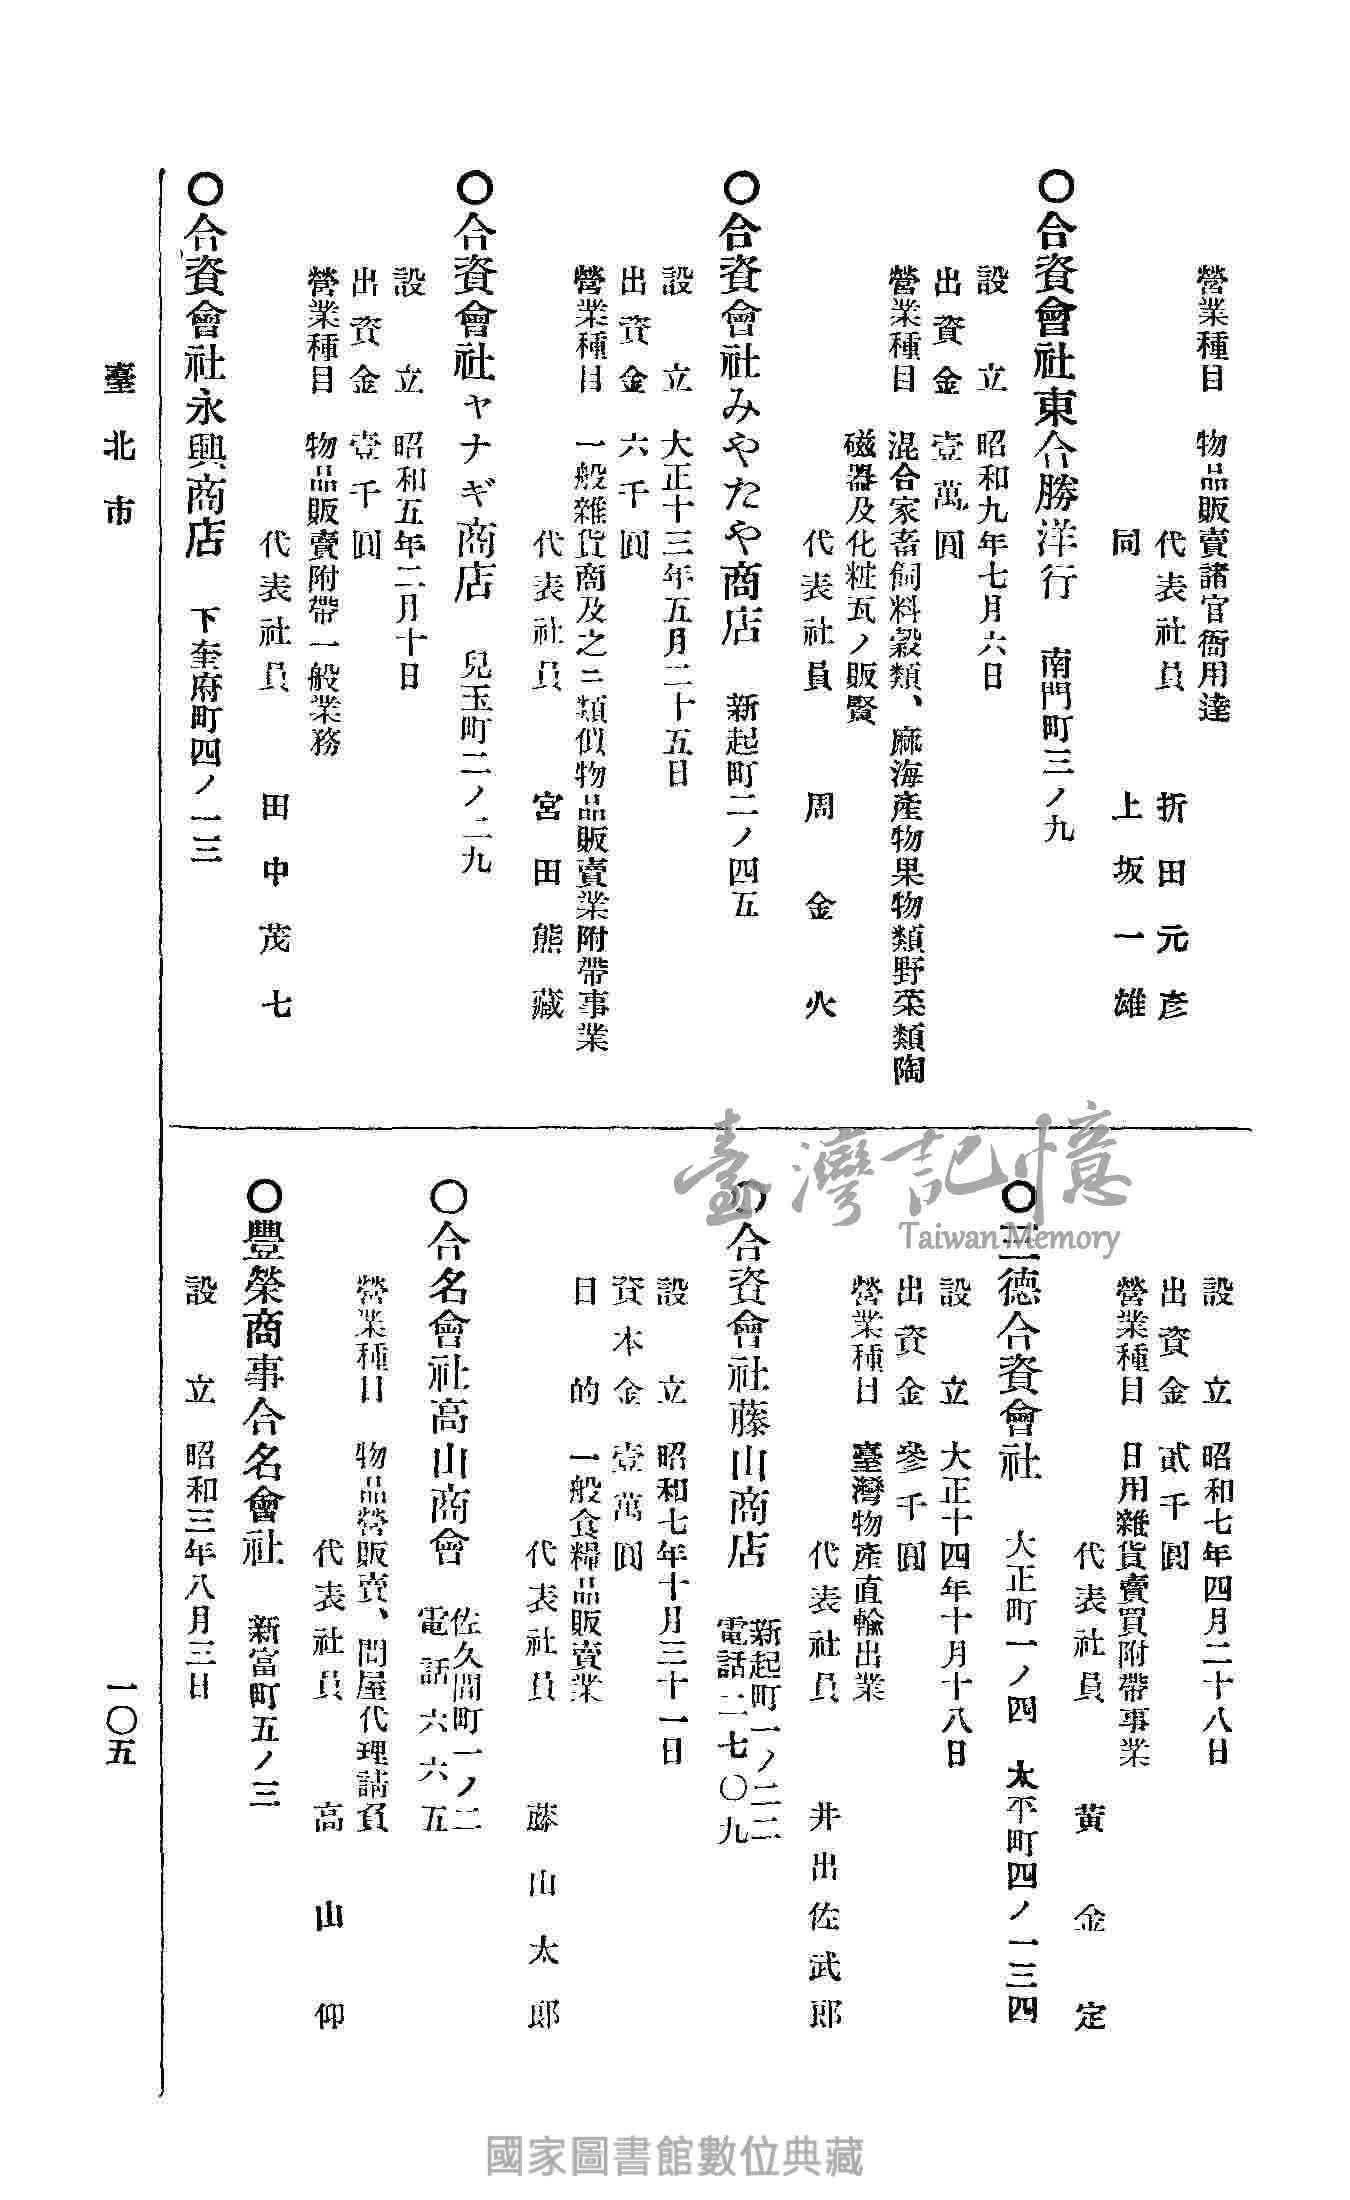 營業種目　物品販賣諸官衙用達
代表社員　折田元彥
同　上坂一雄
〇合資會社東合勝洋行　南門町三ノ九
設立　昭和九年七月六日
出資金　壹萬圓
營業種目　混合家畜飼料穀類、麻海產物果物類野菜類陶
磁器及化粧瓦ノ販賢
代表社員　周金火
〇合資會社みやたや商店　新起町二ノ四五
設立　大正十三年五月二十五日
出資金　六千圓
營業種目　一般雜貨商及之ニ類似物品販賣業附帶事業
代表社員　宮田熊藏
〇合資會社ヤナギ商店　兒玉町二ノ二九
設立　昭和五年二月十日
出資金　壹千圓
營業種目　物品販賣附帶一般業務
代表社員　田中茂七
〇合資會社永興商店　下奎府町四ノ一三
設立　昭和七年四月二十八日
出資金　貳千圓
營業種目　日用雜貨賣買附帶事業
代表社員　黃金定
〇三德合資會社　大正町一ノ四　太平町四ノ一三四
設立　大正十四年十月十八日
出資金　參千圓
營業種目　臺灣物產直輸出業
代表社員　井出佐武郎
〇合資會社藤山商店　新起町一ノ二二
電話二七〇九
設立　昭和七年十月三十一日
資本金　壹萬圓
目的　一般食糧品販賣業
代表社員　藤山太郎
〇合名會社高山商會　佐久間町一ノ二
電話六六五
營業種目　物品營販賣、問屋代理請負
代表社員　高山仰
〇豐榮商事合名會社　新富町五ノ三
設立　昭和三年八月三日
臺北市
一〇五
臺灣記憶
Taiwan Memory
國家圖書館數位典藏